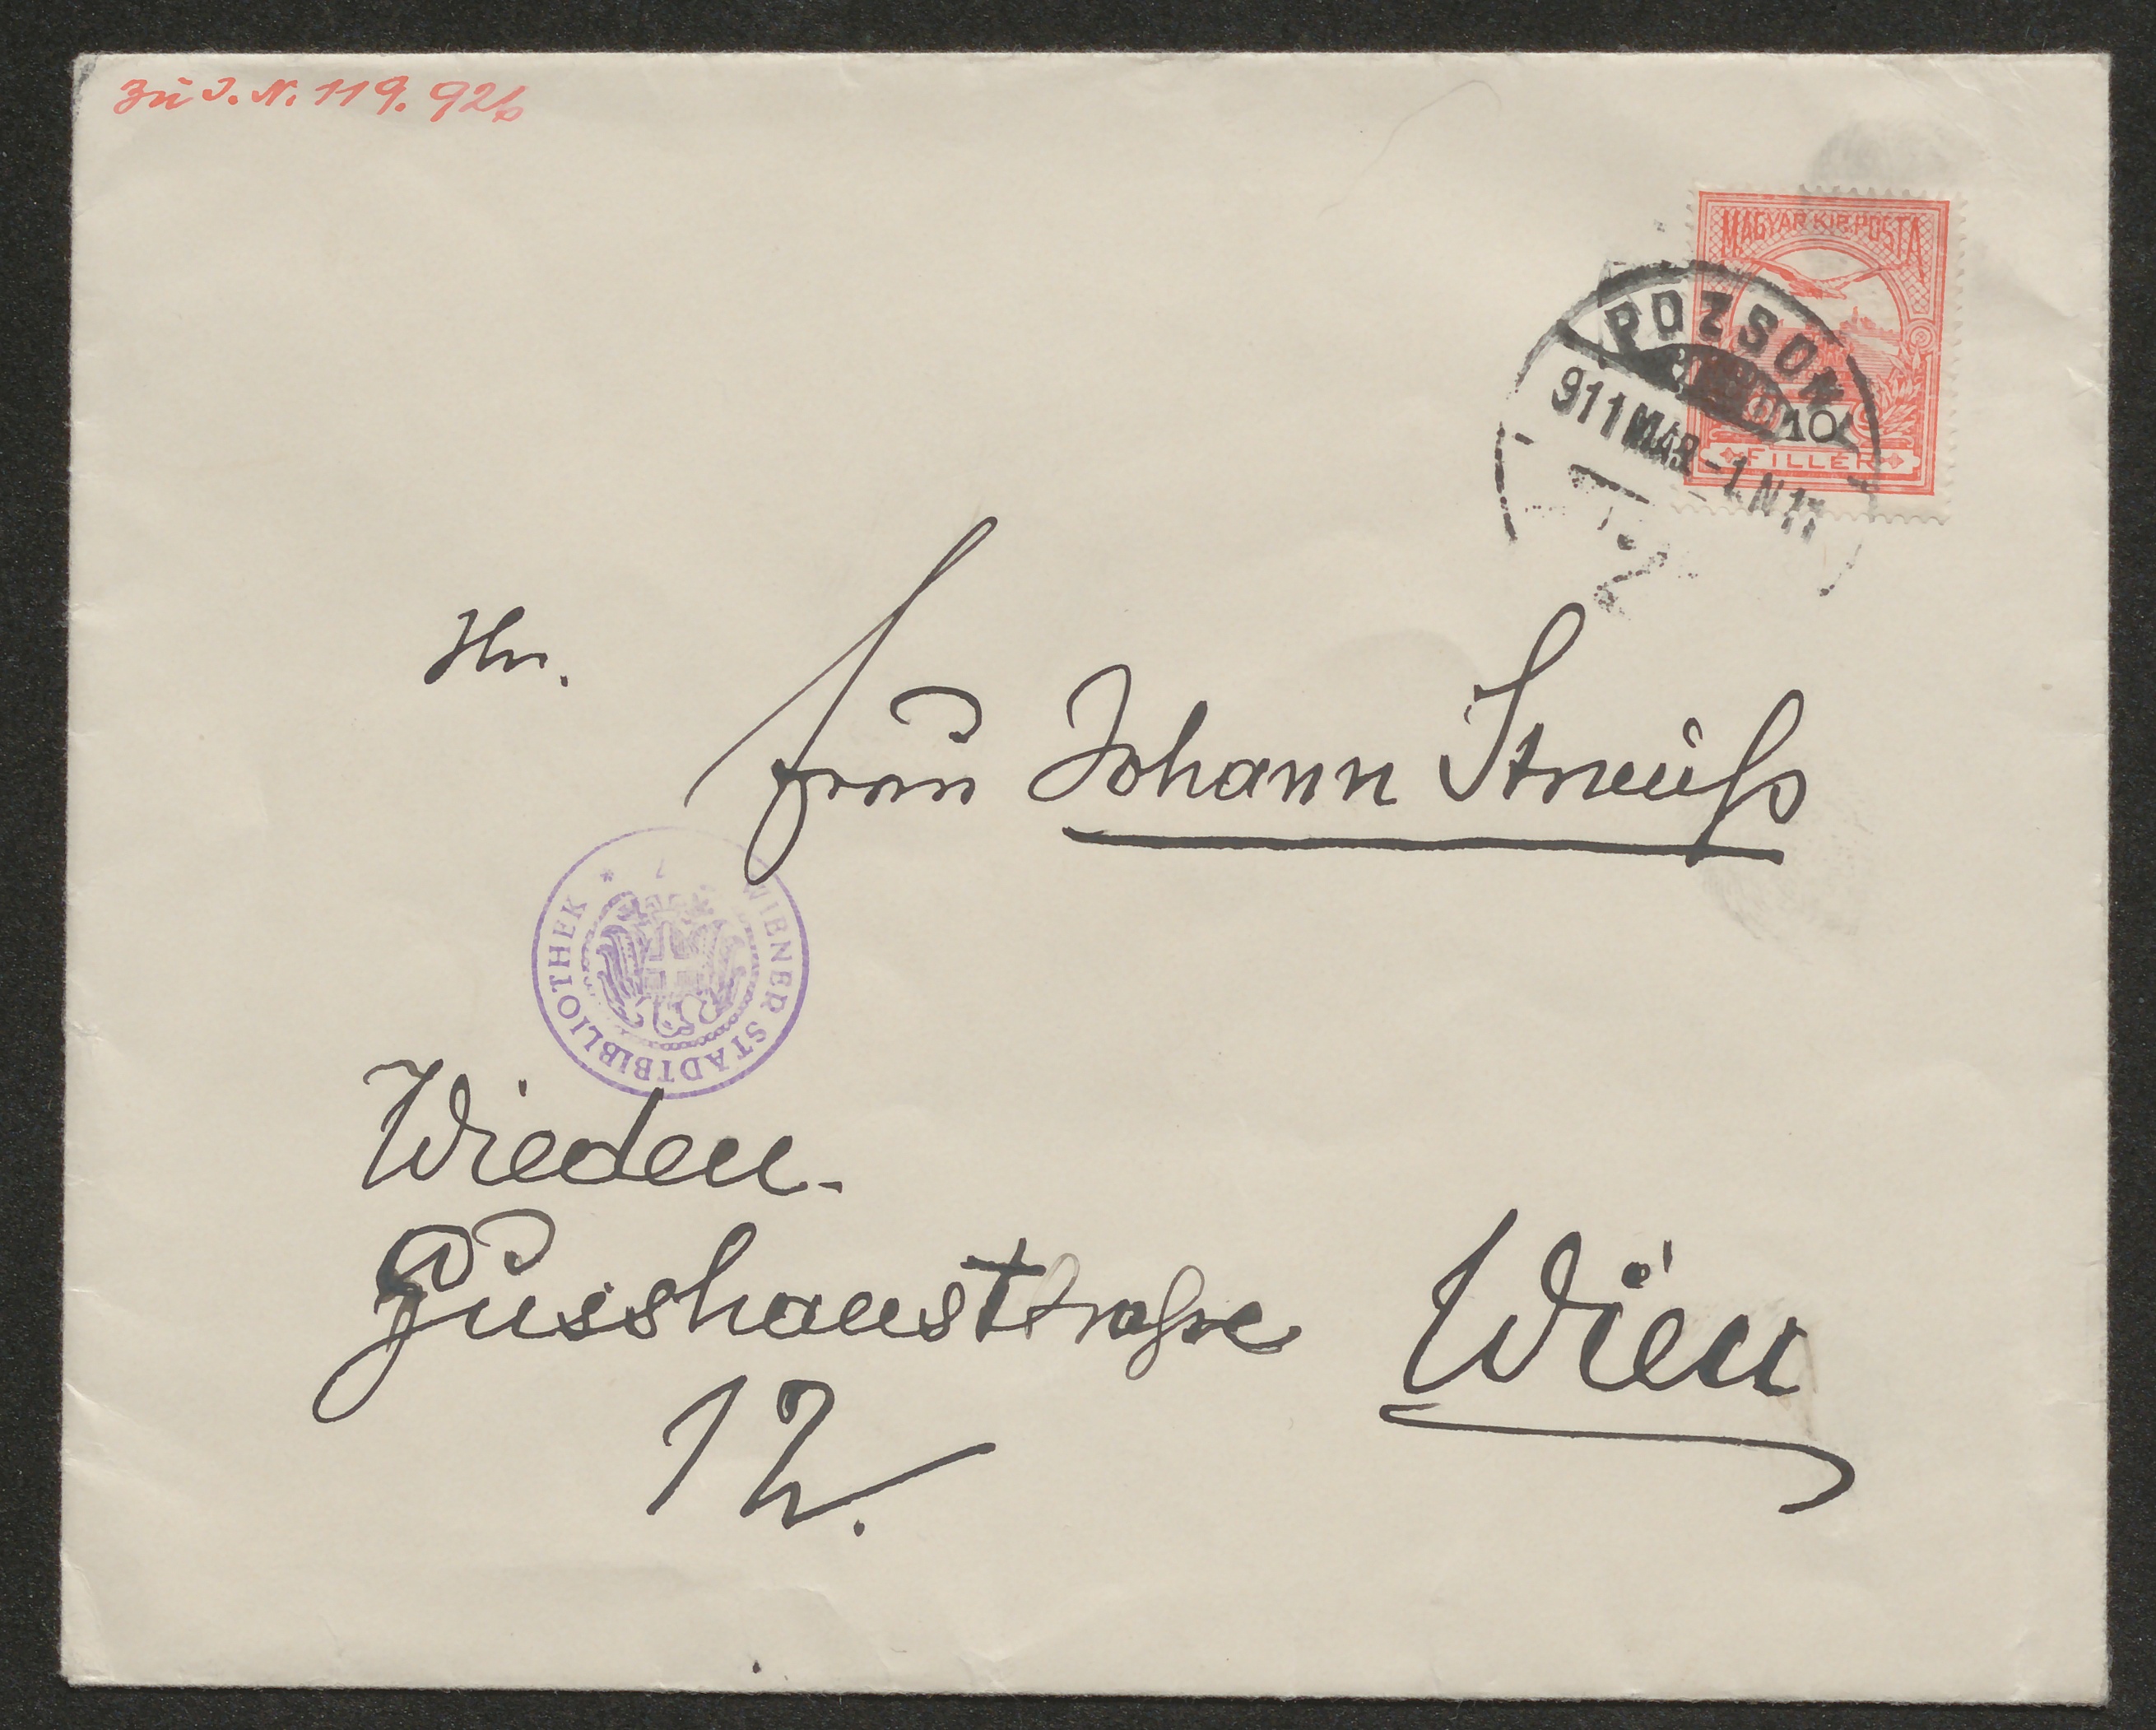 Zu I. N. 119.926
MAGYAR KIR. POSTA
10
FILLÉR
POZSONY
911 MAR -1 N 11
Frau Johann Strauß
* WIENER STADTBIBLIOTHEK *
Wieden.
Gusshausstraße Wien
12.